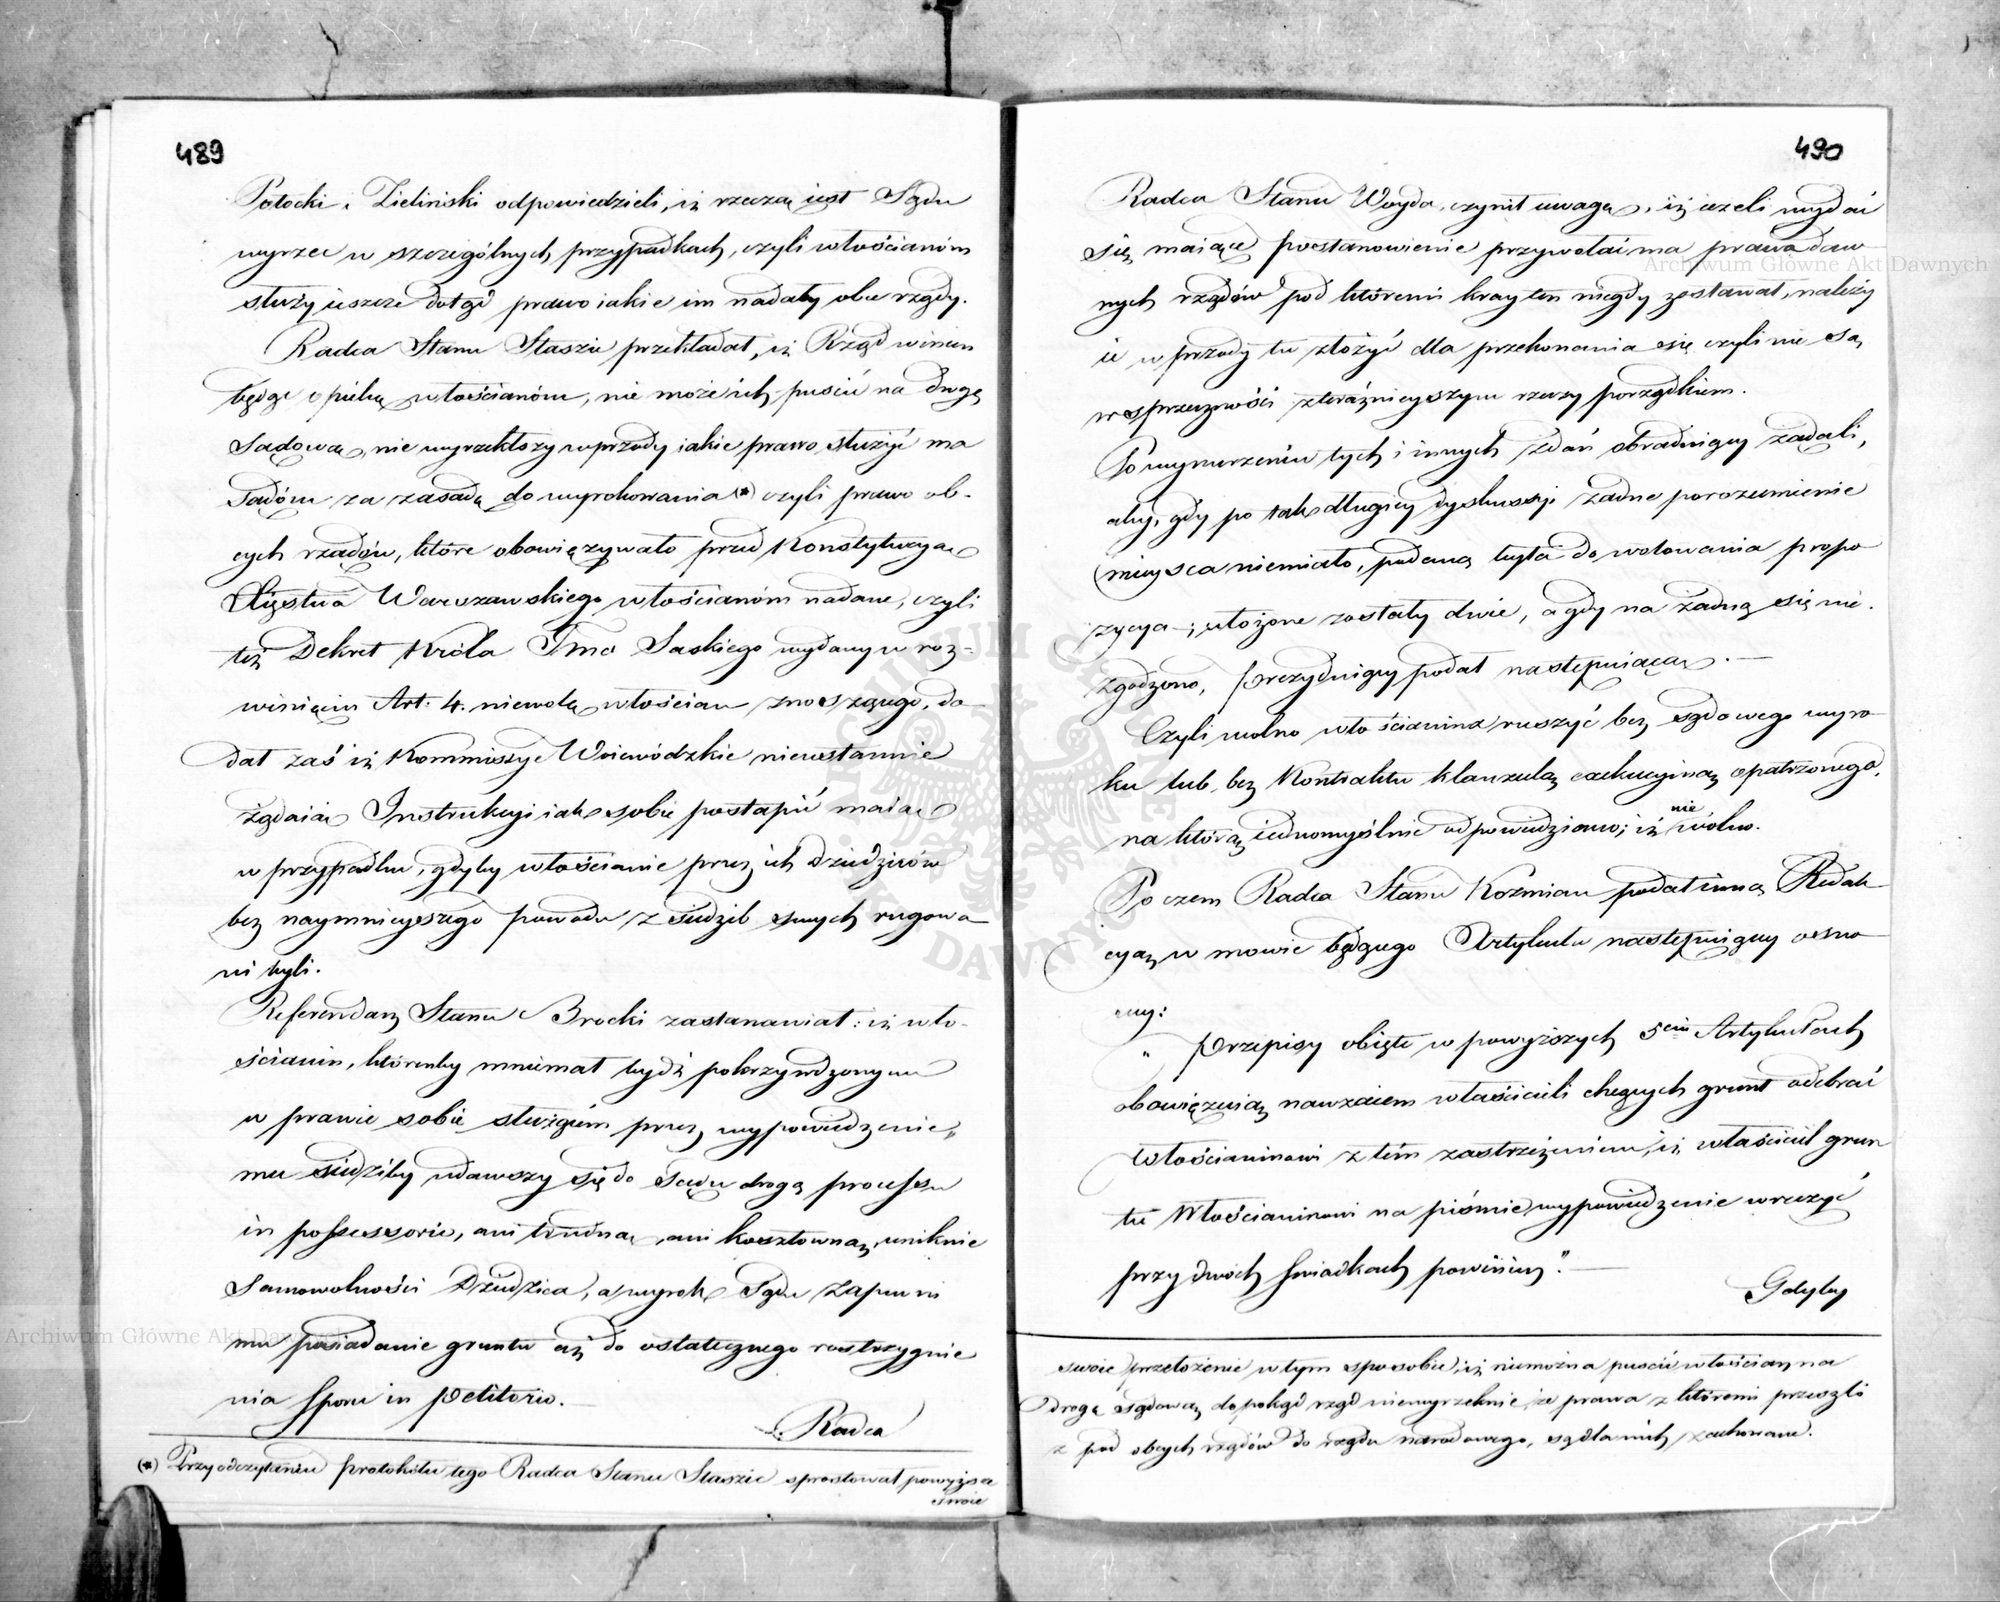 489
Potocki i Zieliński odpowiedzieli, iż rzeczą iest Sądu
wyrzec w szczególnych przypadkach, czyli włościanóm
służy ieszcze dotąd prawo iakie im nadały obce rządy.
Radca Stanu Staszic przekładał, iż Rząd winien
będąc opieką włościanóm, nie może ich puścić na drogę
Sądową, nie wyrzekłszy wprzódy iakie prawo służyć ma
Sądóm za zasadę do wyrokowania (*) czyli prawo ob-
cych rządów, które obowięzywało przed Konstytucyą
Xięstwa Warszawskiego włościanóm nadane, czyli
też Dekret Króla Jmci Saskiego wydany w roz-
winięciu Art: 4. niewolę włościan znoszącego, do-
dał zaś iż Kommissye Woiewódzkie nieustannie
żądaią Instrukcyi iak sobie postąpić maią
w przypadku, gdyby włościanie przez ich dziedziców
bez naymnieyszego powodu z siedzib swych rugowa
ni byli.
Referendarz Stanu Brocki zastanawiał: iż wło-
ścianin, którenby mniemał bydź pokrzywdzonym
w prawie sobie służącém przez wypowiedzenie
mu siedziby udawszy się do Sądu drogą processu
in possessorio, ani trudną, ani kosztowną, uniknie
Samowolności Dziedzica, a wyrok Sądu zapewni
mu posiadanie gruntu aż do ostatecznego rozstrzygnie
nia sporu in petitorio.
Radca
(*) Przy odczytaniu protokółu tego Radca Stanu Staszic sprostował powyższe
swoie
490
Radca Stanu Woyda, czynił uwagę, iż ieżeli wydać
się maiące postanowienie przywołać ma prawa daw
nych rządów pod któremi kray ten niegdy zostawał, należy
ie wprzódy tu złożyć dla przekonania się czyli nie są,
w sprzeczności z teraźnieyszym rzeczy porządkiem.
Po wynurzeniu tych i innych zdań obraduiący żądali,
aby, gdy po tak długiey dyskussyi żadne porozumienie
mieysca niemiało, podaną była do wotowania propo
zycya; ułożone zostały dwie, a gdy na żadną się nie
zgodzono, prezyduiący podał następuiącą. —
Czyli wolno włościanina ruszyć bez sądowego wyro
ku lub bez Kontraktu klauzulą exekucyiną opatrzonego,
na którą iednomyślnie odpowiedziano; iż nie wolno.
Po czem Radca Stanu Koźmian podał inną Redak
cyą w mowie będącego Artykułu następuiącey osno
wy:
„ Przepisy obięte w powyższych 5ciu Artykułach
obowięzuią nawzaiem właścicieli chcących grunt odebrać
Włościaninowi z tém zastrzeżeniem, iż właściciel grun
tu Włościaninowi na piśmie wypowiedzenie wręczyć
przy dwóch świadkach powinien”. —
Gdyby
swoie przełożenie w tym sposobie, iż niemożna puścić włościan na
drogę sądową dopokąd rząd niewyrzeknie że prawa z któremi przeszli
z pod obcych rządów do rządu narodowego, są dla nich zachowane.